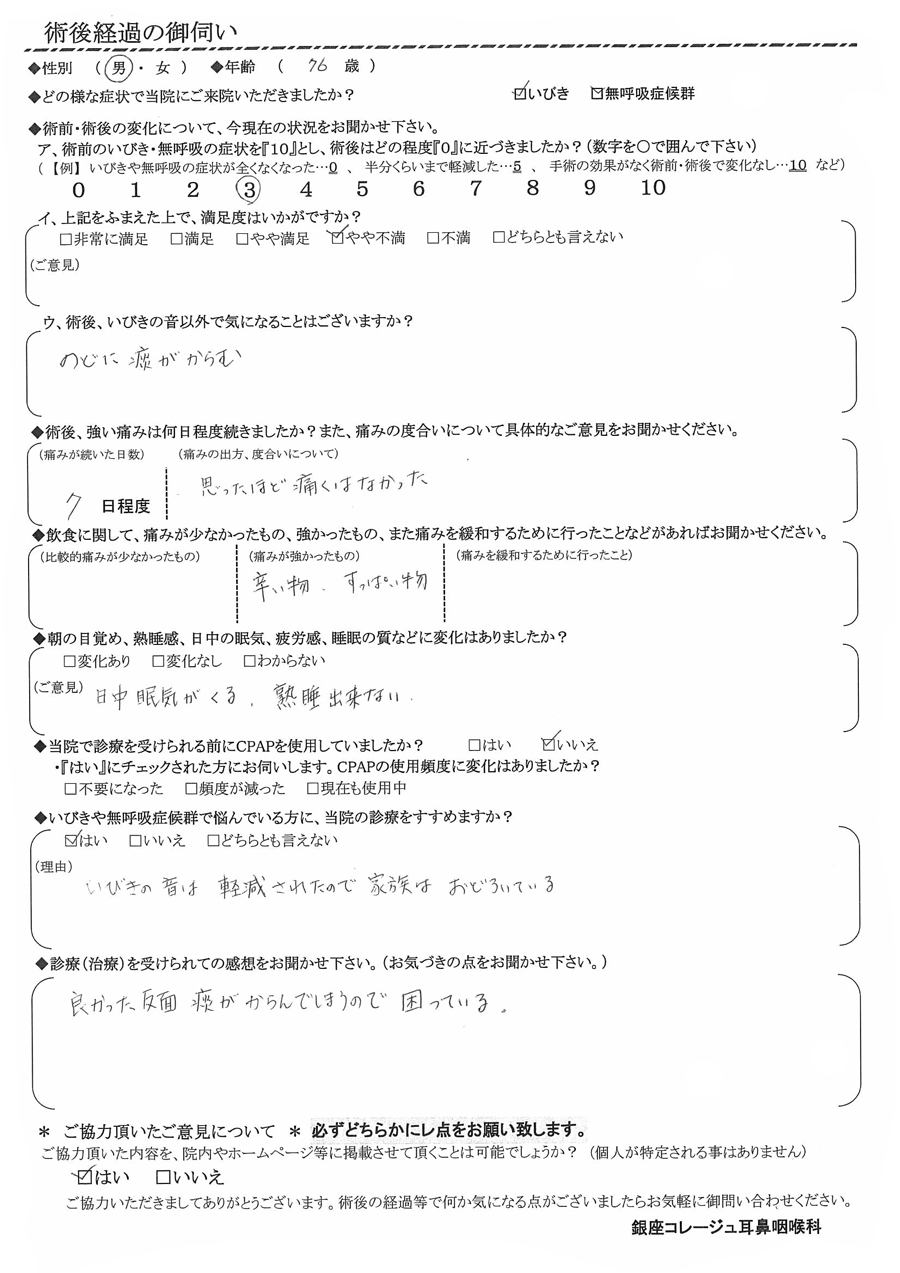 術後経過の御伺い
◆性別 (男・女) ◆年齢 ( 76 歳 )
◆どの様な症状で当院にご来院いただきましたか? ☑いびき ☑無呼吸症候群
◆術前・術後の変化について、今現在の状況をお聞かせ下さい。
ア、術前のいびき・無呼吸の症状を『10』とし、術後はどの程度『0』に近づきましたか?(数字を○で囲んで下さい)
(【例】いびきや無呼吸の症状が全くなくなった…0 、 半分くらいまで軽減した…5 、 手術の効果がなく術前・術後で変化なし…10 など)
0 1 2 3 4 5 6 7 8 9 10
イ、上記をふまえた上で、満足度はいかがですか?
□非常に満足 □満足 □やや満足 ☑やや不満 □不満 □どちらとも言えない
(ご意見)
ウ、術後、いびきの音以外で気になることはございますか?
のどに痰がからむ
◆術後、強い痛みは何日程度続きましたか?また、痛みの度合いについて具体的なご意見をお聞かせください。
(痛みが続いた日数) (痛みの出方、度合いについて)
7 日程度 思ったほど痛くはなかった
◆飲食に関して、痛みが少なかったもの、強かったもの、また痛みを緩和するために行ったことなどがあればお聞かせください。
(比較的痛みが少なかったもの) (痛みが強かったもの) (痛みを緩和するために行ったこと)
辛い物、すっぱい物
◆朝の目覚め、熟睡感、日中の眠気、疲労感、睡眠の質などに変化はありましたか?
□変化あり □変化なし □わからない
(ご意見) 日中眠気がくる、熟睡出来ない.
◆当院で診療を受けられる前にCPAPを使用していましたか? □はい ☑いいえ
・『はい』にチェックされた方にお伺いします。CPAPの使用頻度に変化はありましたか?
□不要になった □頻度が減った □現在も使用中
◆いびきや無呼吸症候群で悩んでいる方に、当院の診療をすすめますか?
☑はい □いいえ □どちらとも言えない
(理由)
いびきの音は軽減されたので家族はおどろいている
◆診療(治療)を受けられての感想をお聞かせ下さい。(お気づきの点をお聞かせ下さい。)
良かった反面 痰がからんでしまうので困っている。
＊ ご協力頂いたご意見について ＊ 必ずどちらかにレ点をお願い致します。
ご協力頂いた内容を、院内やホームページ等に掲載させて頂くことは可能でしょうか? (個人が特定される事はありません)
☑はい □いいえ
ご協力いただきましてありがとうございます。術後の経過等で何か気になる点がございましたらお気軽に御問い合わせください。
銀座コレージュ耳鼻咽喉科